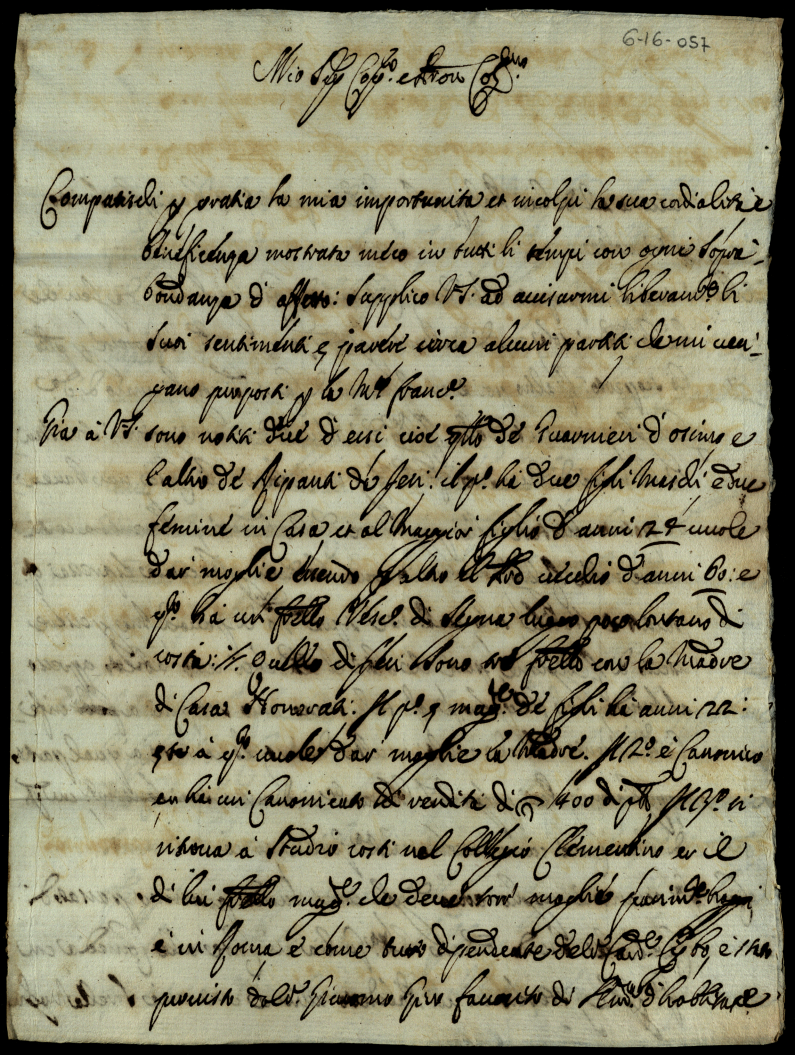 6-16-057
Mio Sig.
Compatischi p gratia la mia importunità et incolpi la sua cordialità e
beneficenza mostrata meco in tutti li tempi con ogni sopra-
bondanza d'affetto: supplico VS. ad avisarmi liberam.te li
suoi sentimenti e parere circa alcuni partiti che mi ven-
gano proposti p la M. Franc.
Già à VS. sono noti due d'essi cioè de Guarnieri d'osimo e
l'altro de Ripanti di Jesi: il p.o ha due figli Maschi e due
femine in Casa et al Maggior figlio d'anni 24 vuole
dar moglie essendo p altro il vecchio d'anni 60: e
q.to ha un fratello Vesc.o di luogo poco lontano di
costà: quello di Jesi sono tre fratelli con la Madre
di Casa Honorati. Il p.o e magg.re de figli ha anni 22:
et à q.to vuole dar moglie la Madre. Il 2.o è Canonico
et hà un Canonicato di rendita di 400 di Il 3.o si
ritrova à Studio costì nel Collegio Clementino et il
di lui fratello magg.re che deve tor moglie
è in Roma e come tutto dipendente del Card.e Cybo, è stato
provisto dal Giacomo favorito di